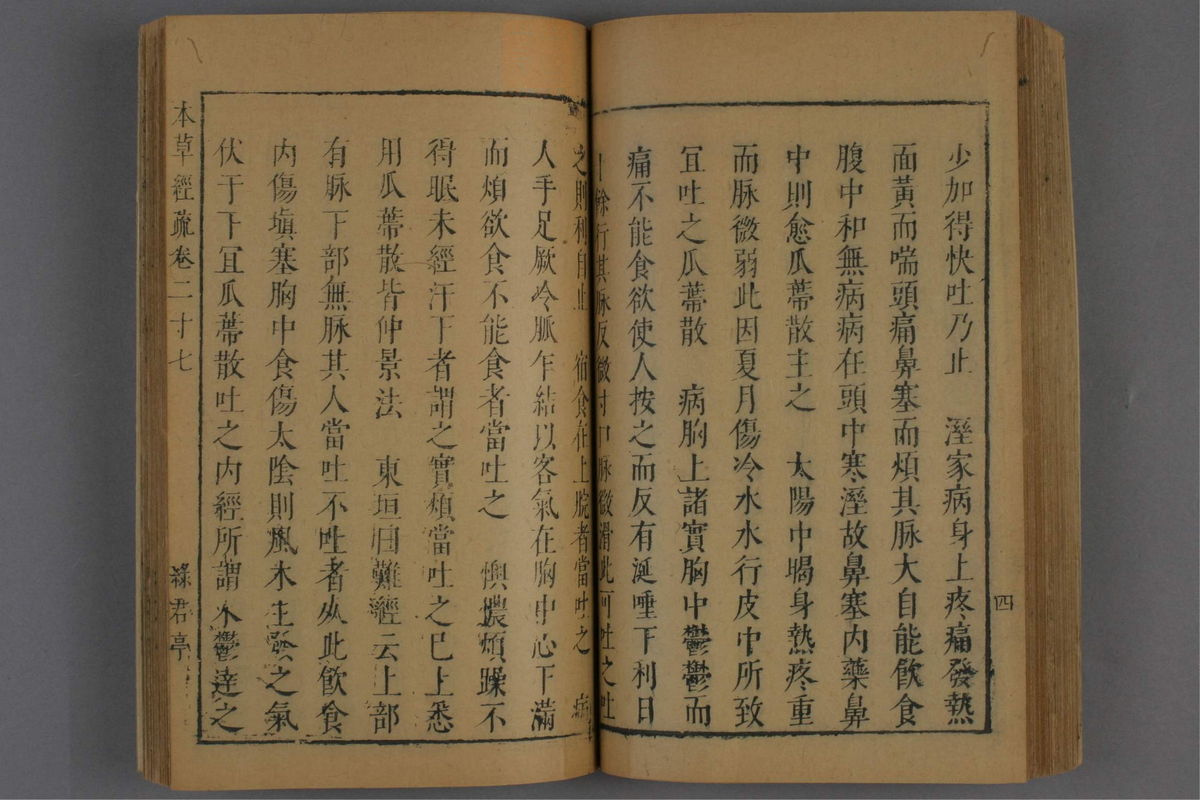 少加得快吐乃止　溼家病身上疼痛發熱
面黃而喘頭痛鼻塞而煩其脉大自能飲食
腹中和無病病在頭中寒溼故鼻塞内藥鼻
中則愈瓜蔕散主之　太陽中暍身熱疼重
而脉微弱此因夏月傷冷水水行皮中所致
宜吐之瓜蔕散　病胸上諸實胸中鬱鬱而
痛不能食欲使人按之而反有涎唾下利日
十餘行其脉反微寸口脉微滑此可吐之吐
之則利自止　宿食在上脘者當吐之　病
人手足厥冷脈乍結以客氣在胸中心下滿
而煩欲食不能食者當吐之　懊憹煩躁不
得眠未經汗下者謂之實煩當吐之已上悉
用瓜蔕散皆仲景法　東垣曰難經云上部
有脉下部無脉其人當吐不吐者死此飲食
内傷塡塞胸中食傷太陰則風木生發之氣
伏于下宜瓜蔕散吐之内經所謂木鬱達之
本草經疏卷二十七
綠君亭
四